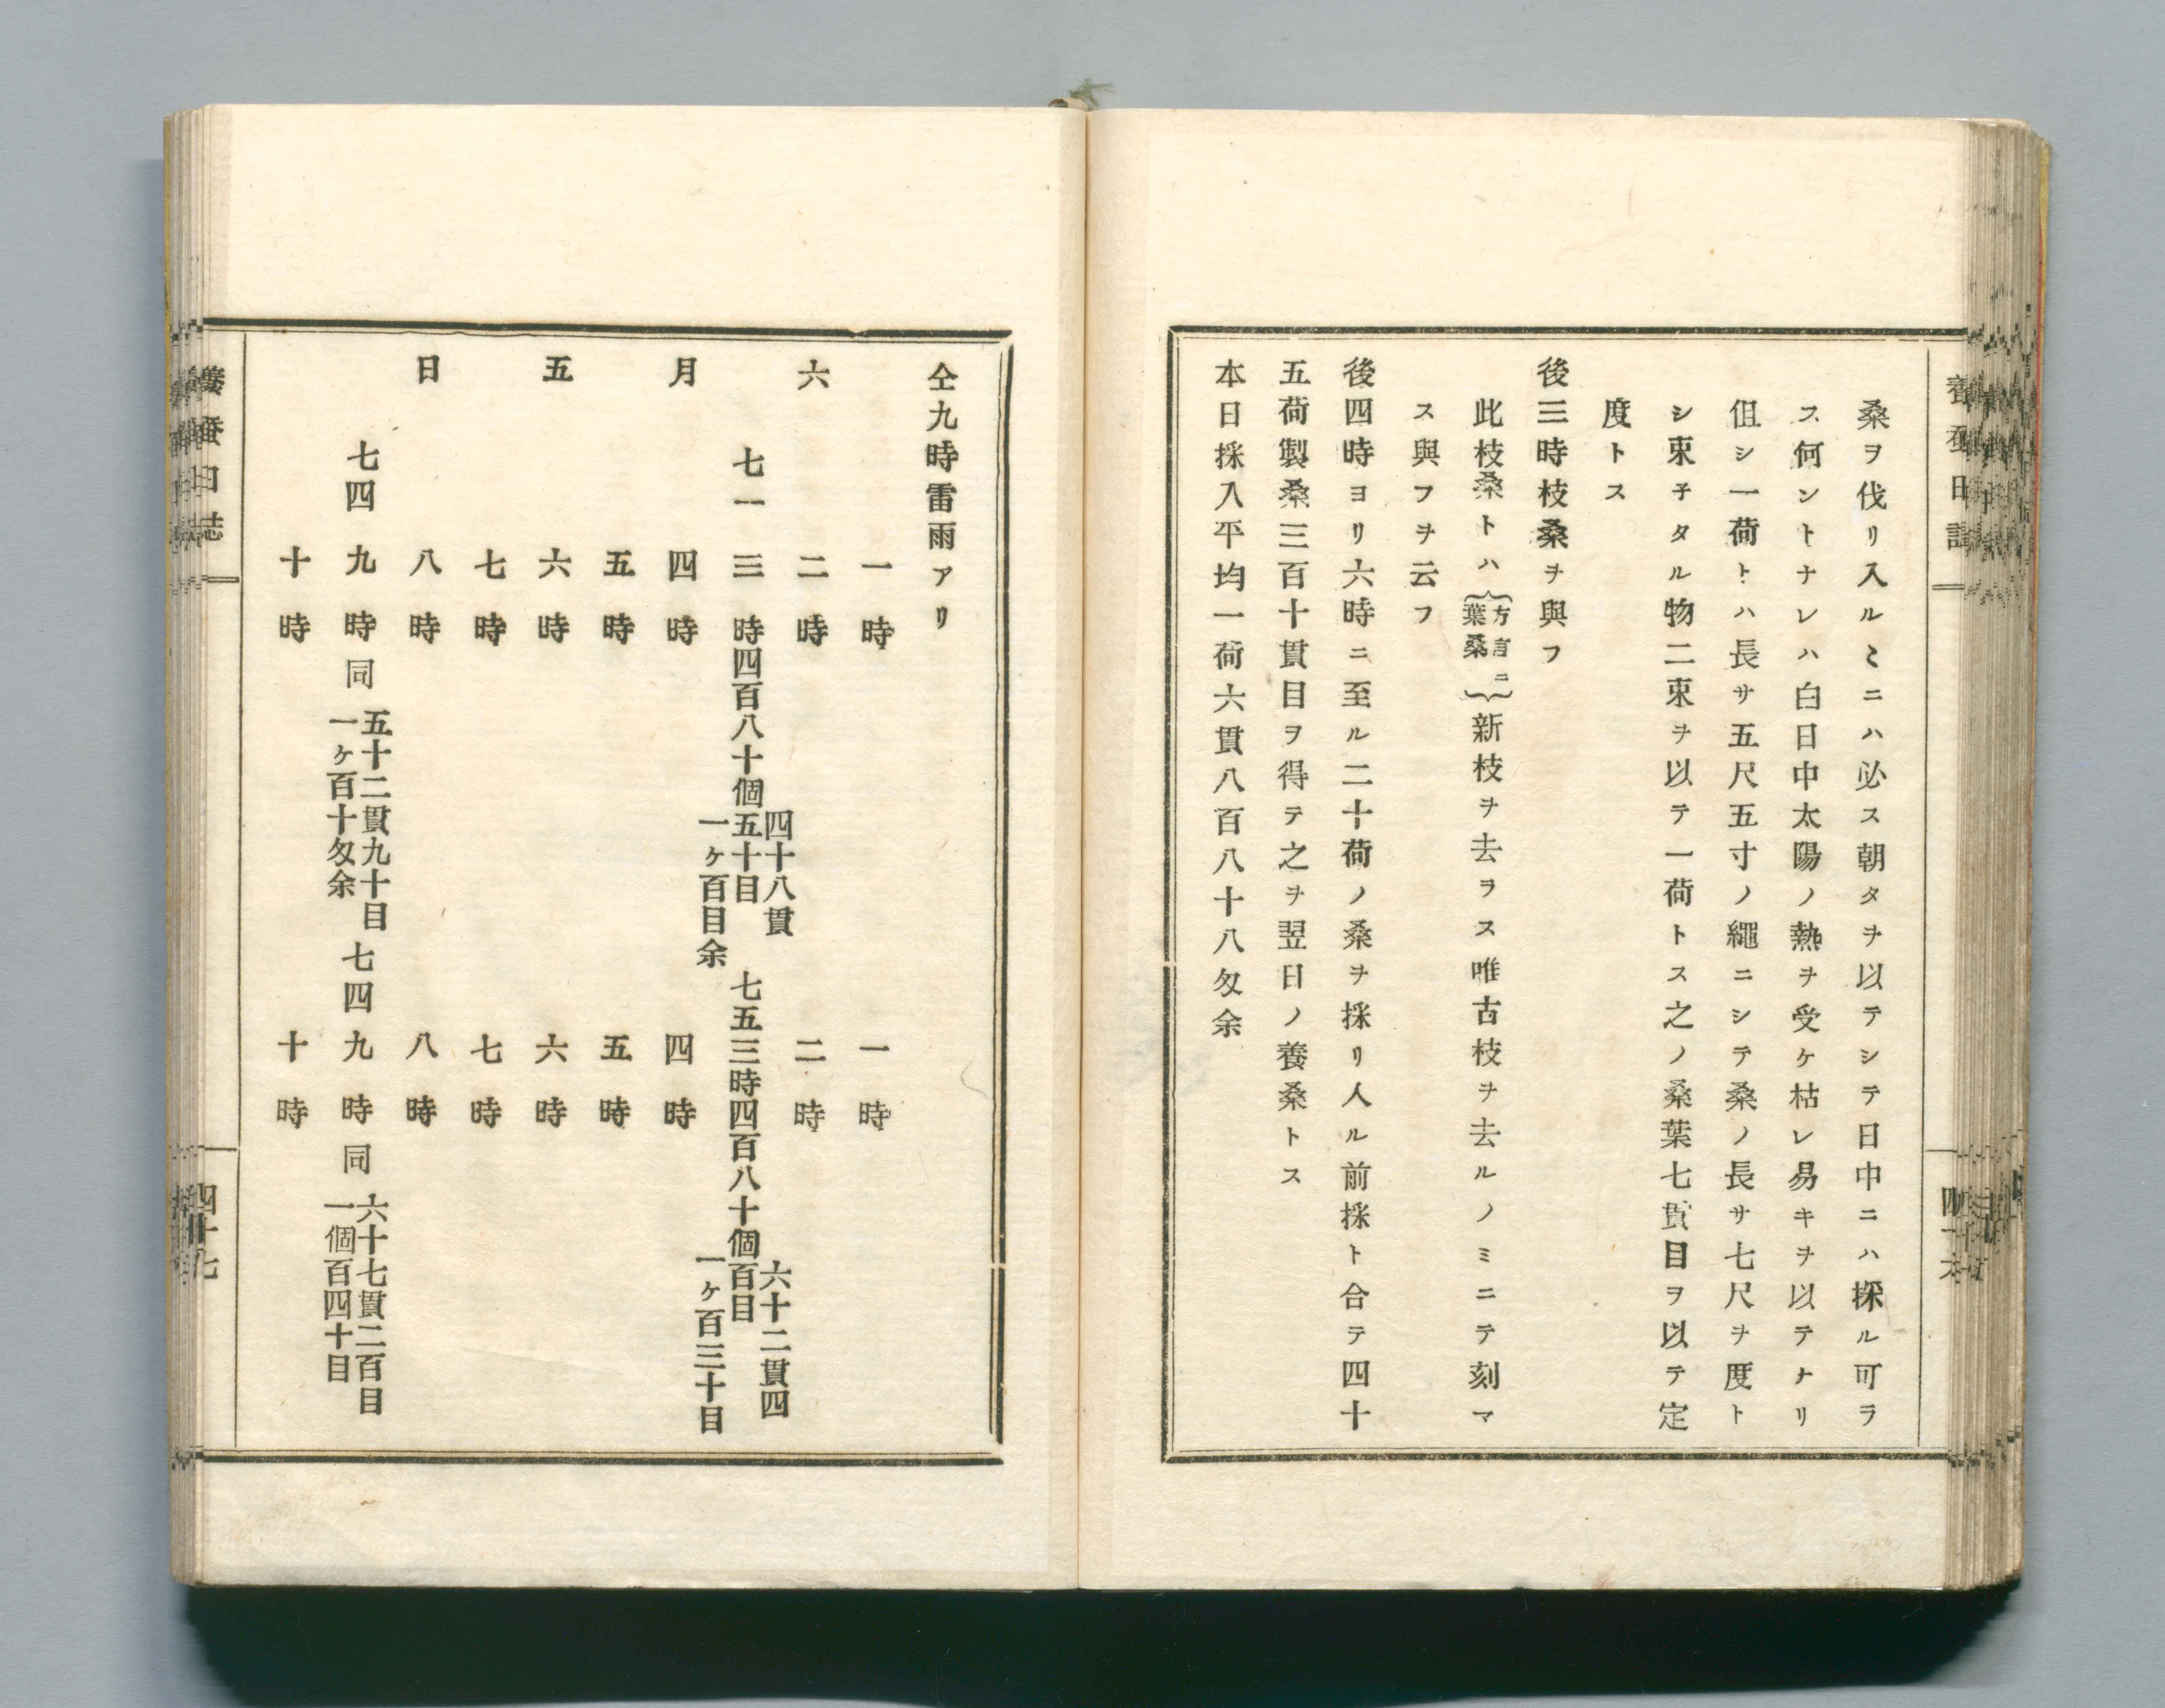 桑ヲ伐リ入ルヽニハ必ス朝タヲ以テシテ日中ニハ採ル可ラ
ス何ントナレハ白日中太陽ノ熱ヲ受ケ枯レ易キヲ以テナリ
但シ一荷トハ長サ五尺五寸ノ繩ニシテ桑ノ長サ七尺ヲ度ト
シ束子タル物二束ヲ以テ一荷トス之ノ桑葉七貫目ヲ以テ定
度トス
後三時枝桑ヲ與フ
此枝桑トハ
方言ニ
葉桑
新枝ヲ去ラス唯古枝ヲ去ルノミニテ刻マ
ス與フヲ云フ
後四時ヨリ六時ニ至ル二十荷ノ桑ヲ採リ人ル前採ト合テ四十
五荷製桑三百十貫目ヲ得テ之ヲ翌日ノ養桑トス
本日採入平均一荷六貫八百八十八匁余
仝九時雷雨アリ
一時 一時
六 二時 二時
七一 三時四百八十個
四十八貫
五十目
一ヶ百目余
七五三時四百八十個
六十二貫四
百目
一ヶ百三十目
月 四時 四時
五時 五時
五 六時 六時
七時 七時
日 八時 八時
七四 九時 同
五十二貫九十目
一ヶ百十匁余
七四 九時 同
六十七貫二百目
一個百四十目
十時 十時
養蚕日誌
四十七